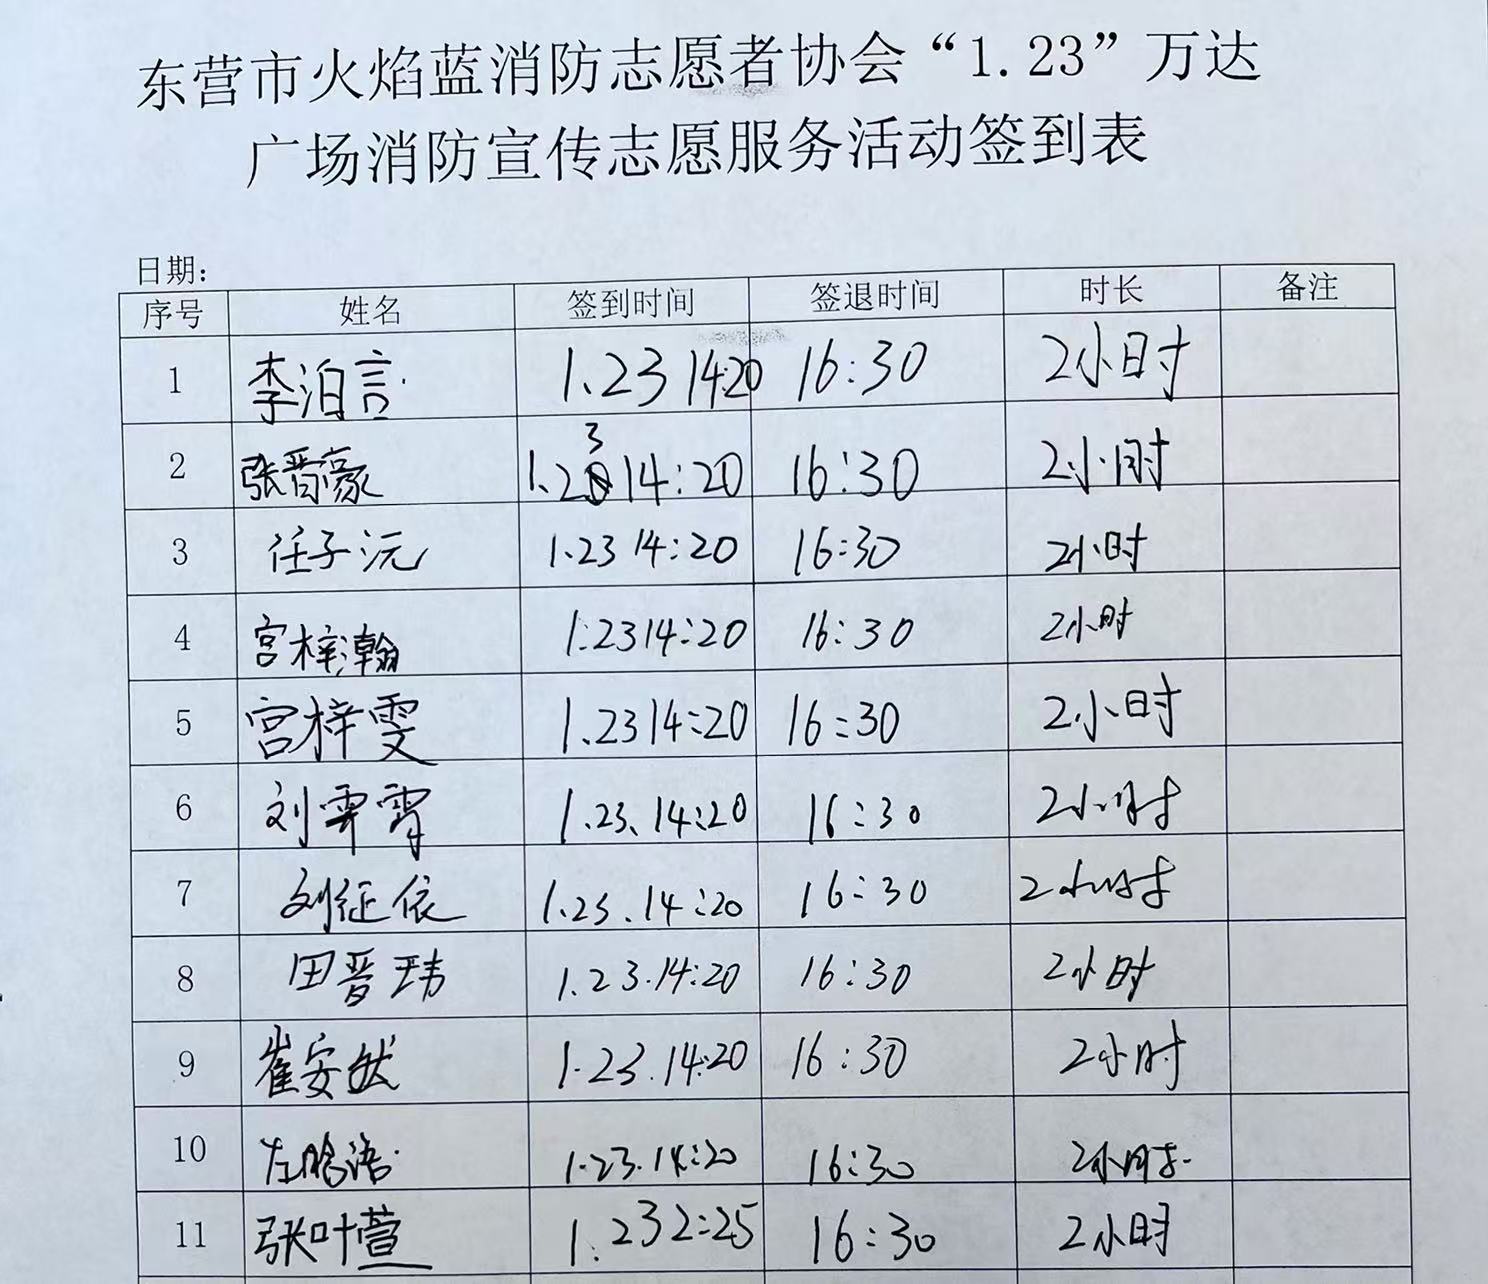 东营市火焰蓝消防志愿者协会“1.23”万达
广场消防宣传志愿服务活动签到表
日期：
序号 姓名 签到时间 签退时间 时长 备注
1 李泊言 1.23 14:20 16:30 2小时
2 张晋豪 1.23 14:20 16:30 2小时
3 任子沅 1.23 14:20 16:30 2小时
4 宫梓瀚 1.23 14:20 16:30 2小时
5 宫梓雯 1.23 14:20 16:30 2小时
6 刘霁霄 1.23.14:20 16:30 2小时
7 刘征依 1.23.14:20 16:30 2小时
8 田晋玮 1.23.14:20 16:30 2小时
9 崔安然 1.23.14:20 16:30 2小时
10 左晗语 1.23.14:20 16:30 2小时
11 张叶萱 1.23 2:25 16:30 2小时